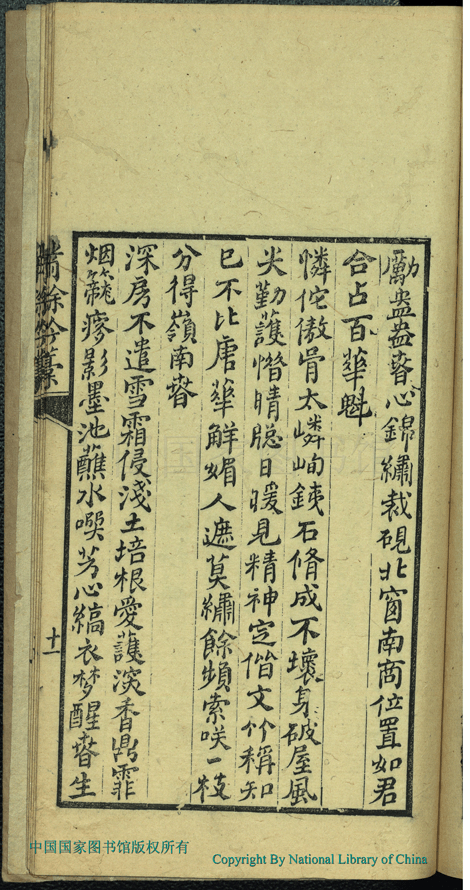 勵盎盎春心錦繡裁硯北窗南商位置如君
合占百華魁
憐佗傲骨太嶙峋銕石脩成不壞身破屋風
尖勤護惜晴牕日暖見精神定偕文竹稱知
已不比唐華解媚人遮莫繡餘頻索咲一枝
分得嶺南春
深房不遣雪霜侵淺土培根愛護深香鼎霏
烟籠瘦影墨池蘸水噀芳心縞衣梦醒春生
繡餘吟藁
十一
中国国家图书馆版权所有
Copyright By National Library of China